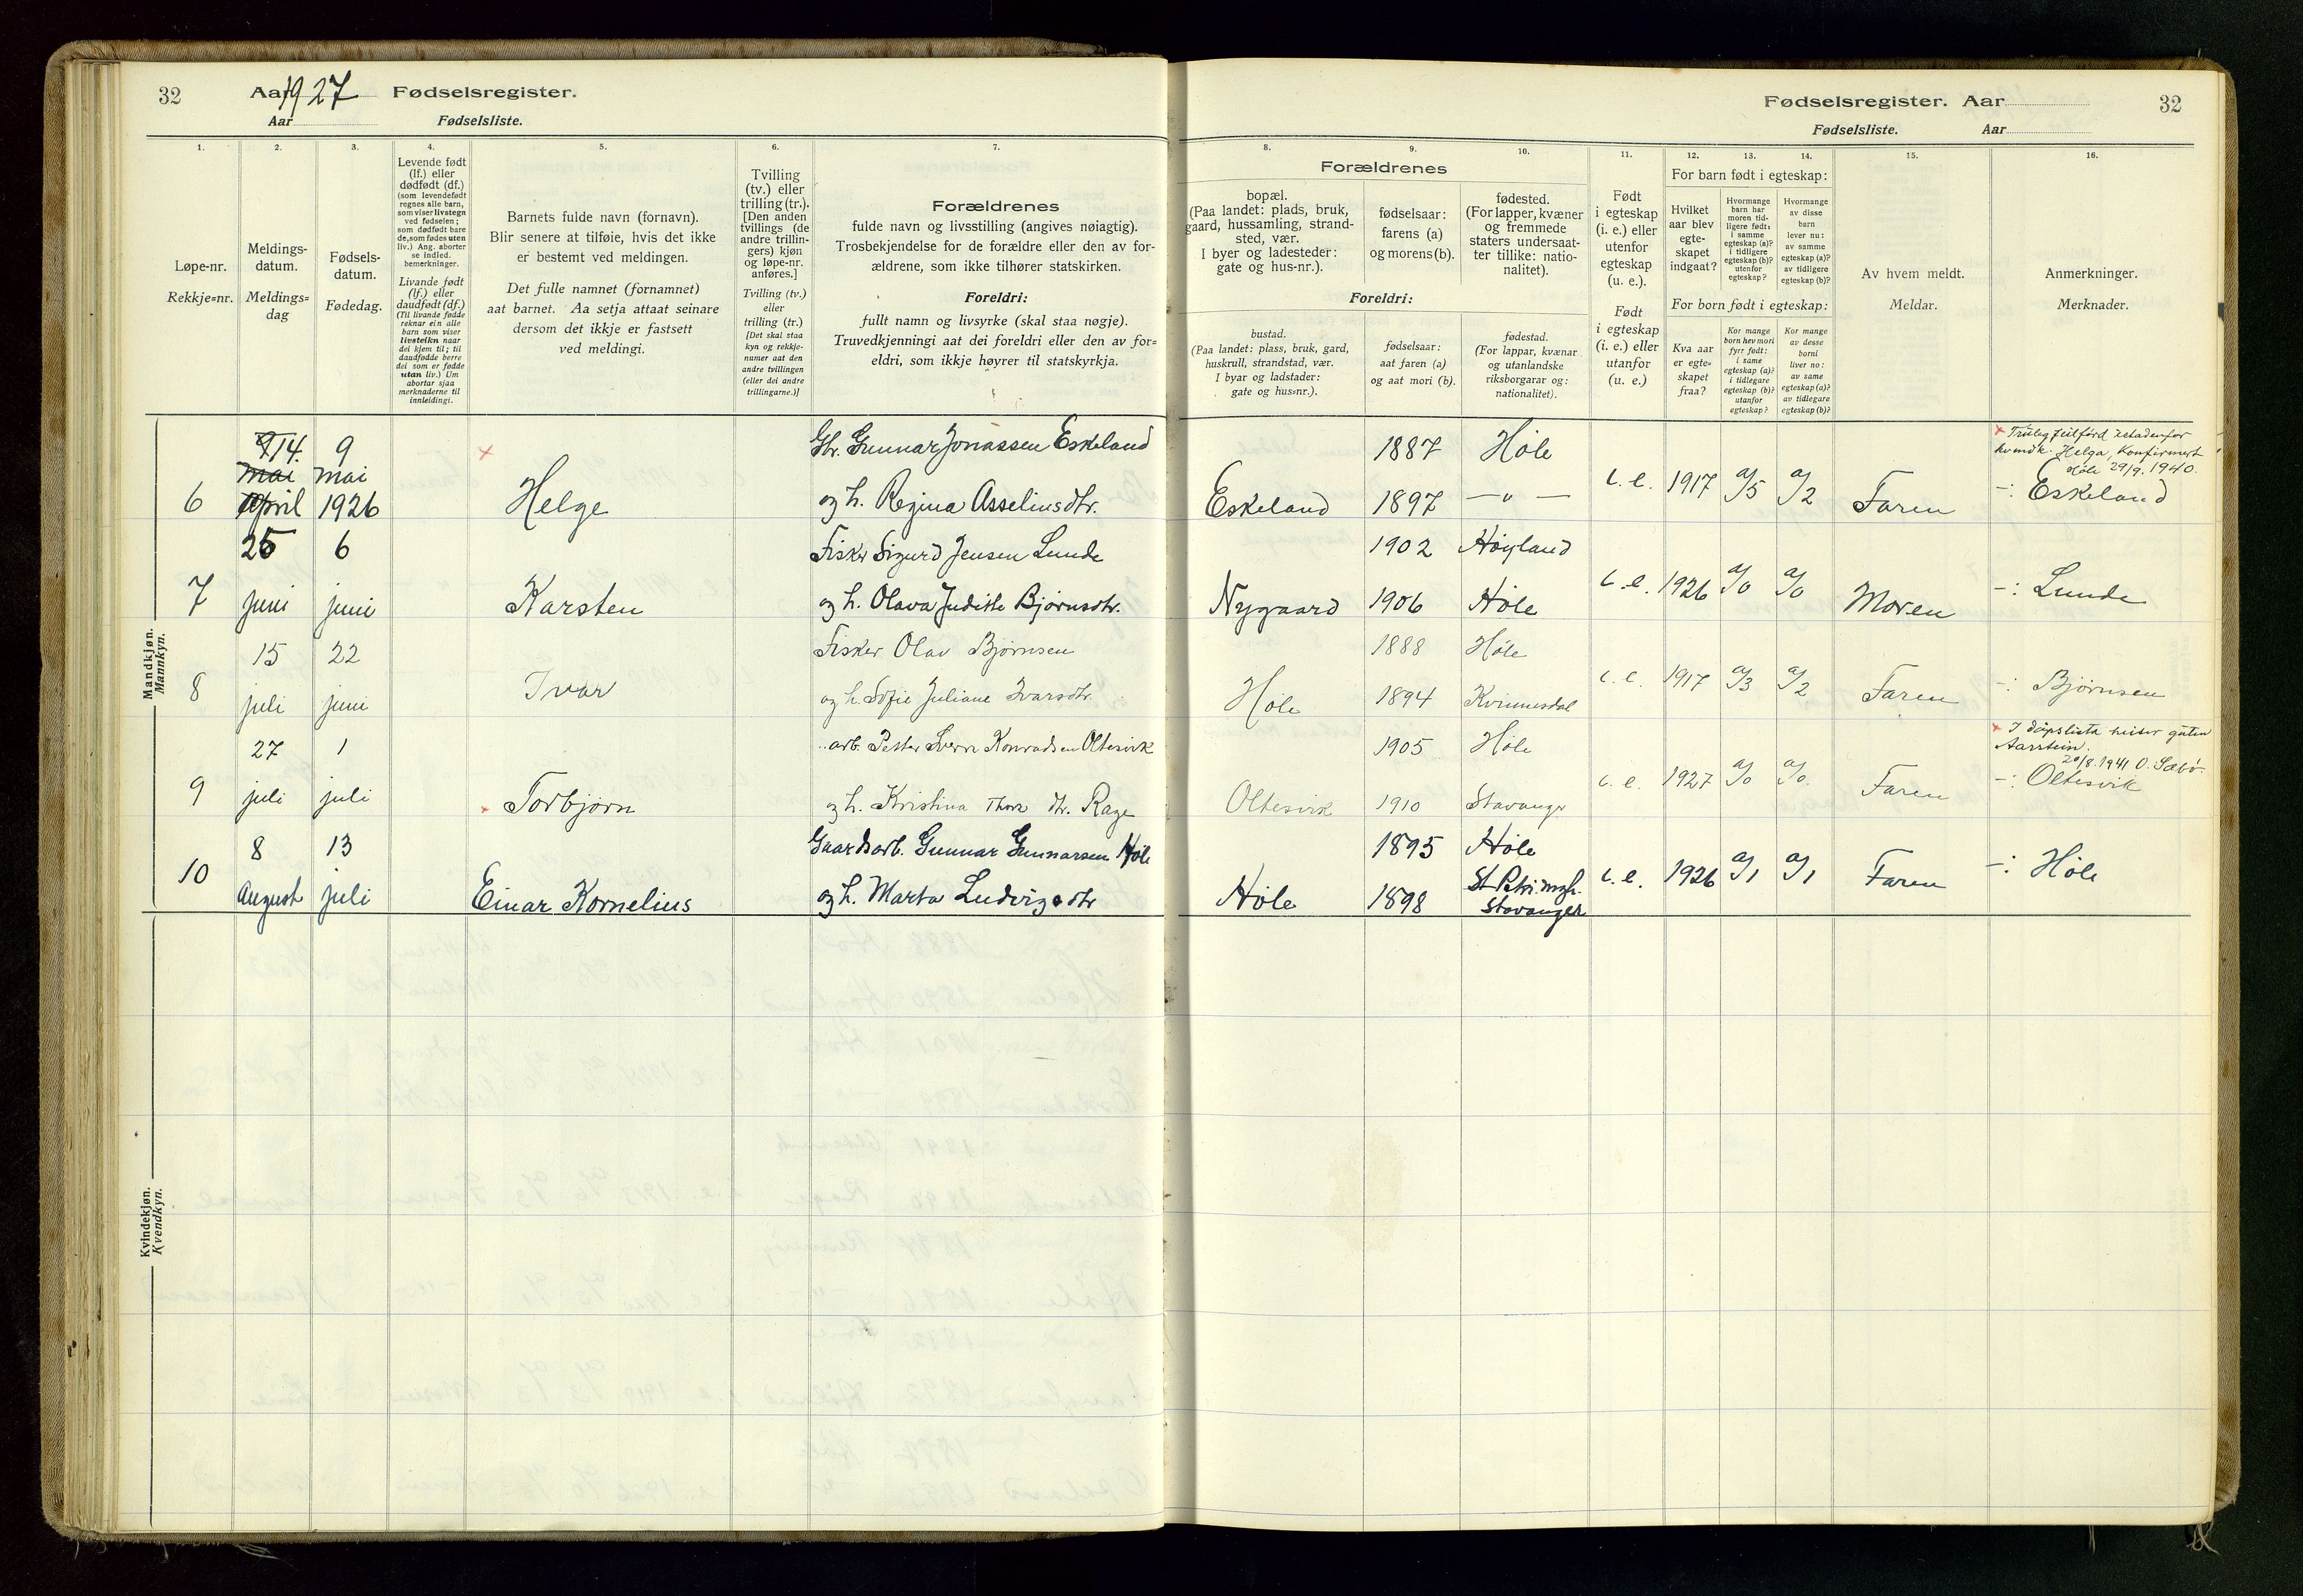 32 Aar 1927 Fødselsregister.
Aar Fødselsliste.
Fødselsregister. Aar 32
Fødselsliste. Aar
1. 2. 3. 4. 5. 6. 7. 8. 9. 10. 11. 12. 13. 14. 15. 16.
Løpe-nr.
Rekkje=nr.
Meldings-
datum.
Meldings=
dag
Fødsels-
datum.
Fødedag.
Levende født
(lf.) eller
dødfødt (df.)
(som levendefødt
regnes alle barn,
som viser livstegn
ved fødselen;
som dødfødt bare
de, som fødes uten
liv.) Ang. aborter
se indled.
bemerkninger.
Livande født
(lf.) eller
daudfødt (df.)
(Til livande fødde
reknar ein alle
barn som viser
livsteikn naar
dei kjem til; til
daudfødde berre
dei som er fødde
utan liv.) Um
abortar sjaa
merknaderne til
innleidingi.
Barnets fulde navn (fornavn).
Blir senere at tilføie, hvis det ikke
er bestemt ved meldingen.
Det fulle namnet (fornamnet)
aat barnet. Aa setja attaat seinare
dersom det ikkje er fastsett
ved meldingi.
Tvilling
(tv.) eller
trilling (tr.).
[Den anden
tvillings (de
andre trillin-
gers) kjøn
og løpe-nr.
anføres.]
Tvilling (tv.)
eller
trilling (tr.)
[Det skal staa
kyn og rekkje-
numer aat den
andre tvillingen
(eller dei andre
trillingarne.)]
Forældrenes
fulde navn og livsstilling (angives nøiagtig).
Trosbekjendelse for de forældre eller den av for-
ældrene, som ikke tilhører statskirken.
Foreldri:
fullt namn og livsyrke (skal staa nøgje).
Truvedkjenningi aat dei foreldri eller den av for=
eldri, som ikkje høyrer til statskyrkja.
Forældrenes
bopæl.
(Paa landet: plads, bruk,
gaard, hussamling, strand-
sted, vær.
I byer og ladesteder:
gate og hus-nr.).
fødselsaar:
farens (a)
og morens (b).
fødested.
(For lapper, kvæner
og fremmede
staters undersaat-
ter tillike: natio-
nalitet).
Foreldri:
bustad.
(Paa landet: plass, bruk, gard,
huskrull, strandstad, vær.
I byar og ladstader:
gate og hus=nr.).
fødselsaar:
aat faren (a)
og aat mori (b).
fødestad.
(For lappar, kvænar
og utanlandske
riksborgarar og:
nationalitet).
Født
i egteskap
(i. e.) eller
utenfor
egteskap
(u. e.).
Født
i egteskap
(i. e.) eller
utanfor
(u. e.)
For barn født i egteskap:
Hvilket
aar blev
egte-
skapet
indgaat?
Hvormange
barn har
moren tid-
ligere født:
i samme
egteskap (a)?
i tidligere
egteskap (b)?
utenfor
egteskap?
Hvormange
av disse
barn
lever nu:
av samme
egteskap (a)?
av tidligere
egteskap (b)?
For born født i egteskap:
Kva aar
er egte=
skapet
fraa?
Kor mange
born hev mori
fyrr født:
i same
egteskap (a)?
i tidlegare
egteskap (b)?
utanfor
egteskap?
Kor mange
av desse
borni
liver no:
av same
egteskap (a)?
av tidlegare
egteskap (b)?
Av hvem meldt.
Meldar.
Anmerkninger.
Merknader.
Mandkjøn.
Mannkyn.
9 14. 9 × Gbr. Gunnar Jonassen Eskeland 1887 Høle × Truleg feilførd
mai mai kvinnk. Helga, Konfirmert
Høle 29/9. 1940.
6 April 1926 Helge og h. Regina Asseliusdtr. Eskeland 1897 — " — i. e. 1917 a/5 a/2 Faren -: Eskeland
25 6 Fisker Sigurd Jensen Lunde 1902 Høyland
7 juni juni Karsten og h. Olava Judithe Bjørnsdtr. Nygaard 1906 Høle i. e. 1926 a/0 a/0 Moren -: Lunde
15 22 Fisker Olav Bjørnsen 1888 Høle
8 juli juni Ivar og h. Sofie Juliane Ivarsdtr. Høle 1894 Kvinnesdal i. e. 1917 a/3 a/2 Faren -: Bjørnsen
27 1 arb. Petter Sverre Konradsen Oltesvik 1905 Høle × I dåpslista heiser guten
Aarstein.
20/8. 1941 O. Sæbø.
9 juli juli Torbjørn og h. Kristina Thora dtr. Rage Oltesvik 1910 Stavanger i. e. 1927 a/0 a/0. Faren -: Oltesvik
8 13 Gaardsarb. Gunnar Gunnarsen Høle 1895 Høle
10 August juli Einar Kornelius og h. Marta Ludvigsdtr Høle 1898 St Petri mgh. Stavanger i. e. 1926 a/1 a/1 Faren -: Høle
Kvindekjøn.
Kvendkyn.